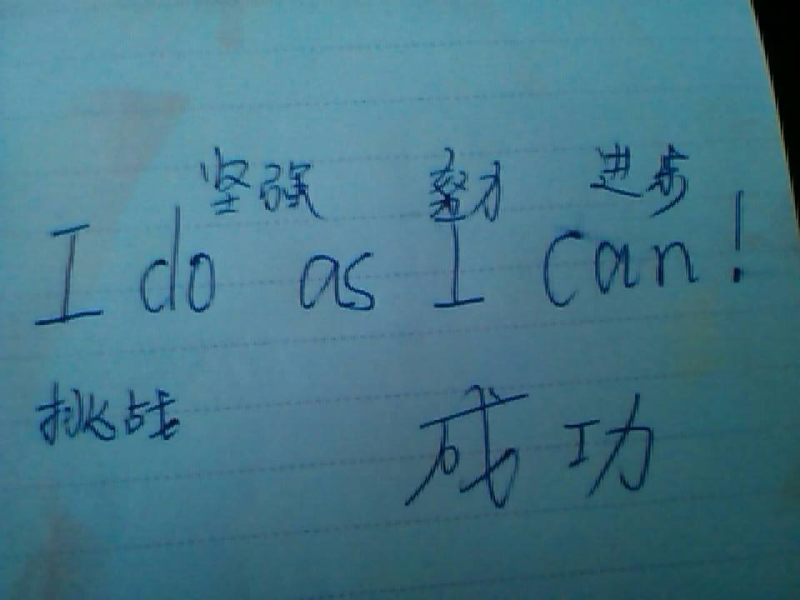 坚强 努力 进步
I do as I can!
挑战
成功